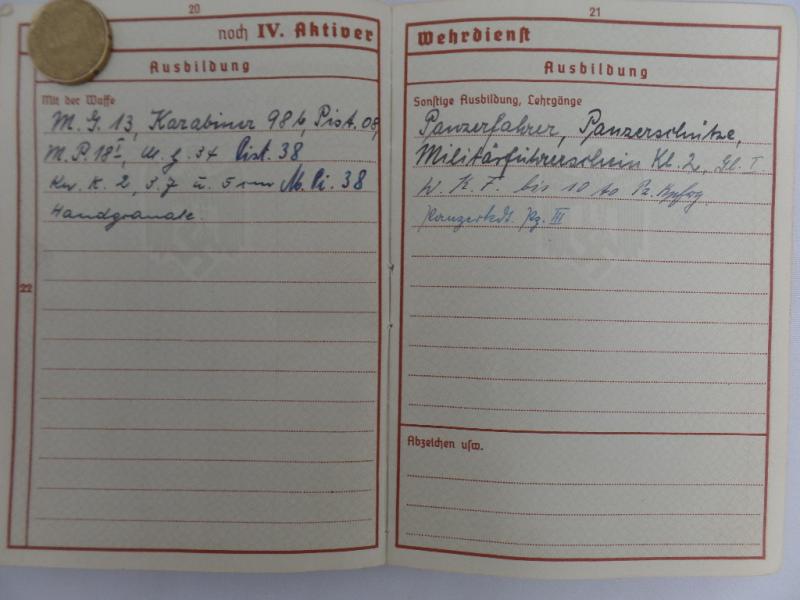 20
noch IV. Aktiver
Ausbildung
Mit der Waffe
M. G. 13, Karabiner 98 b, Pist. 08,
M. P. 18 I, M. G. 34 Pist. 38
Kw. K. 2, 3.7 u. 5 cm M. Pi. 38
Handgranate
22
21
Wehrdienst
Ausbildung
Sonstige Ausbildung, Lehrgänge
Panzerfahrer, Panzerschütze,
Militärführerschein Kl. 2, Gl. I.
W. K. F. bis 10 to Pz. Kpfwg.
Pz. III
Abzeichen usw.